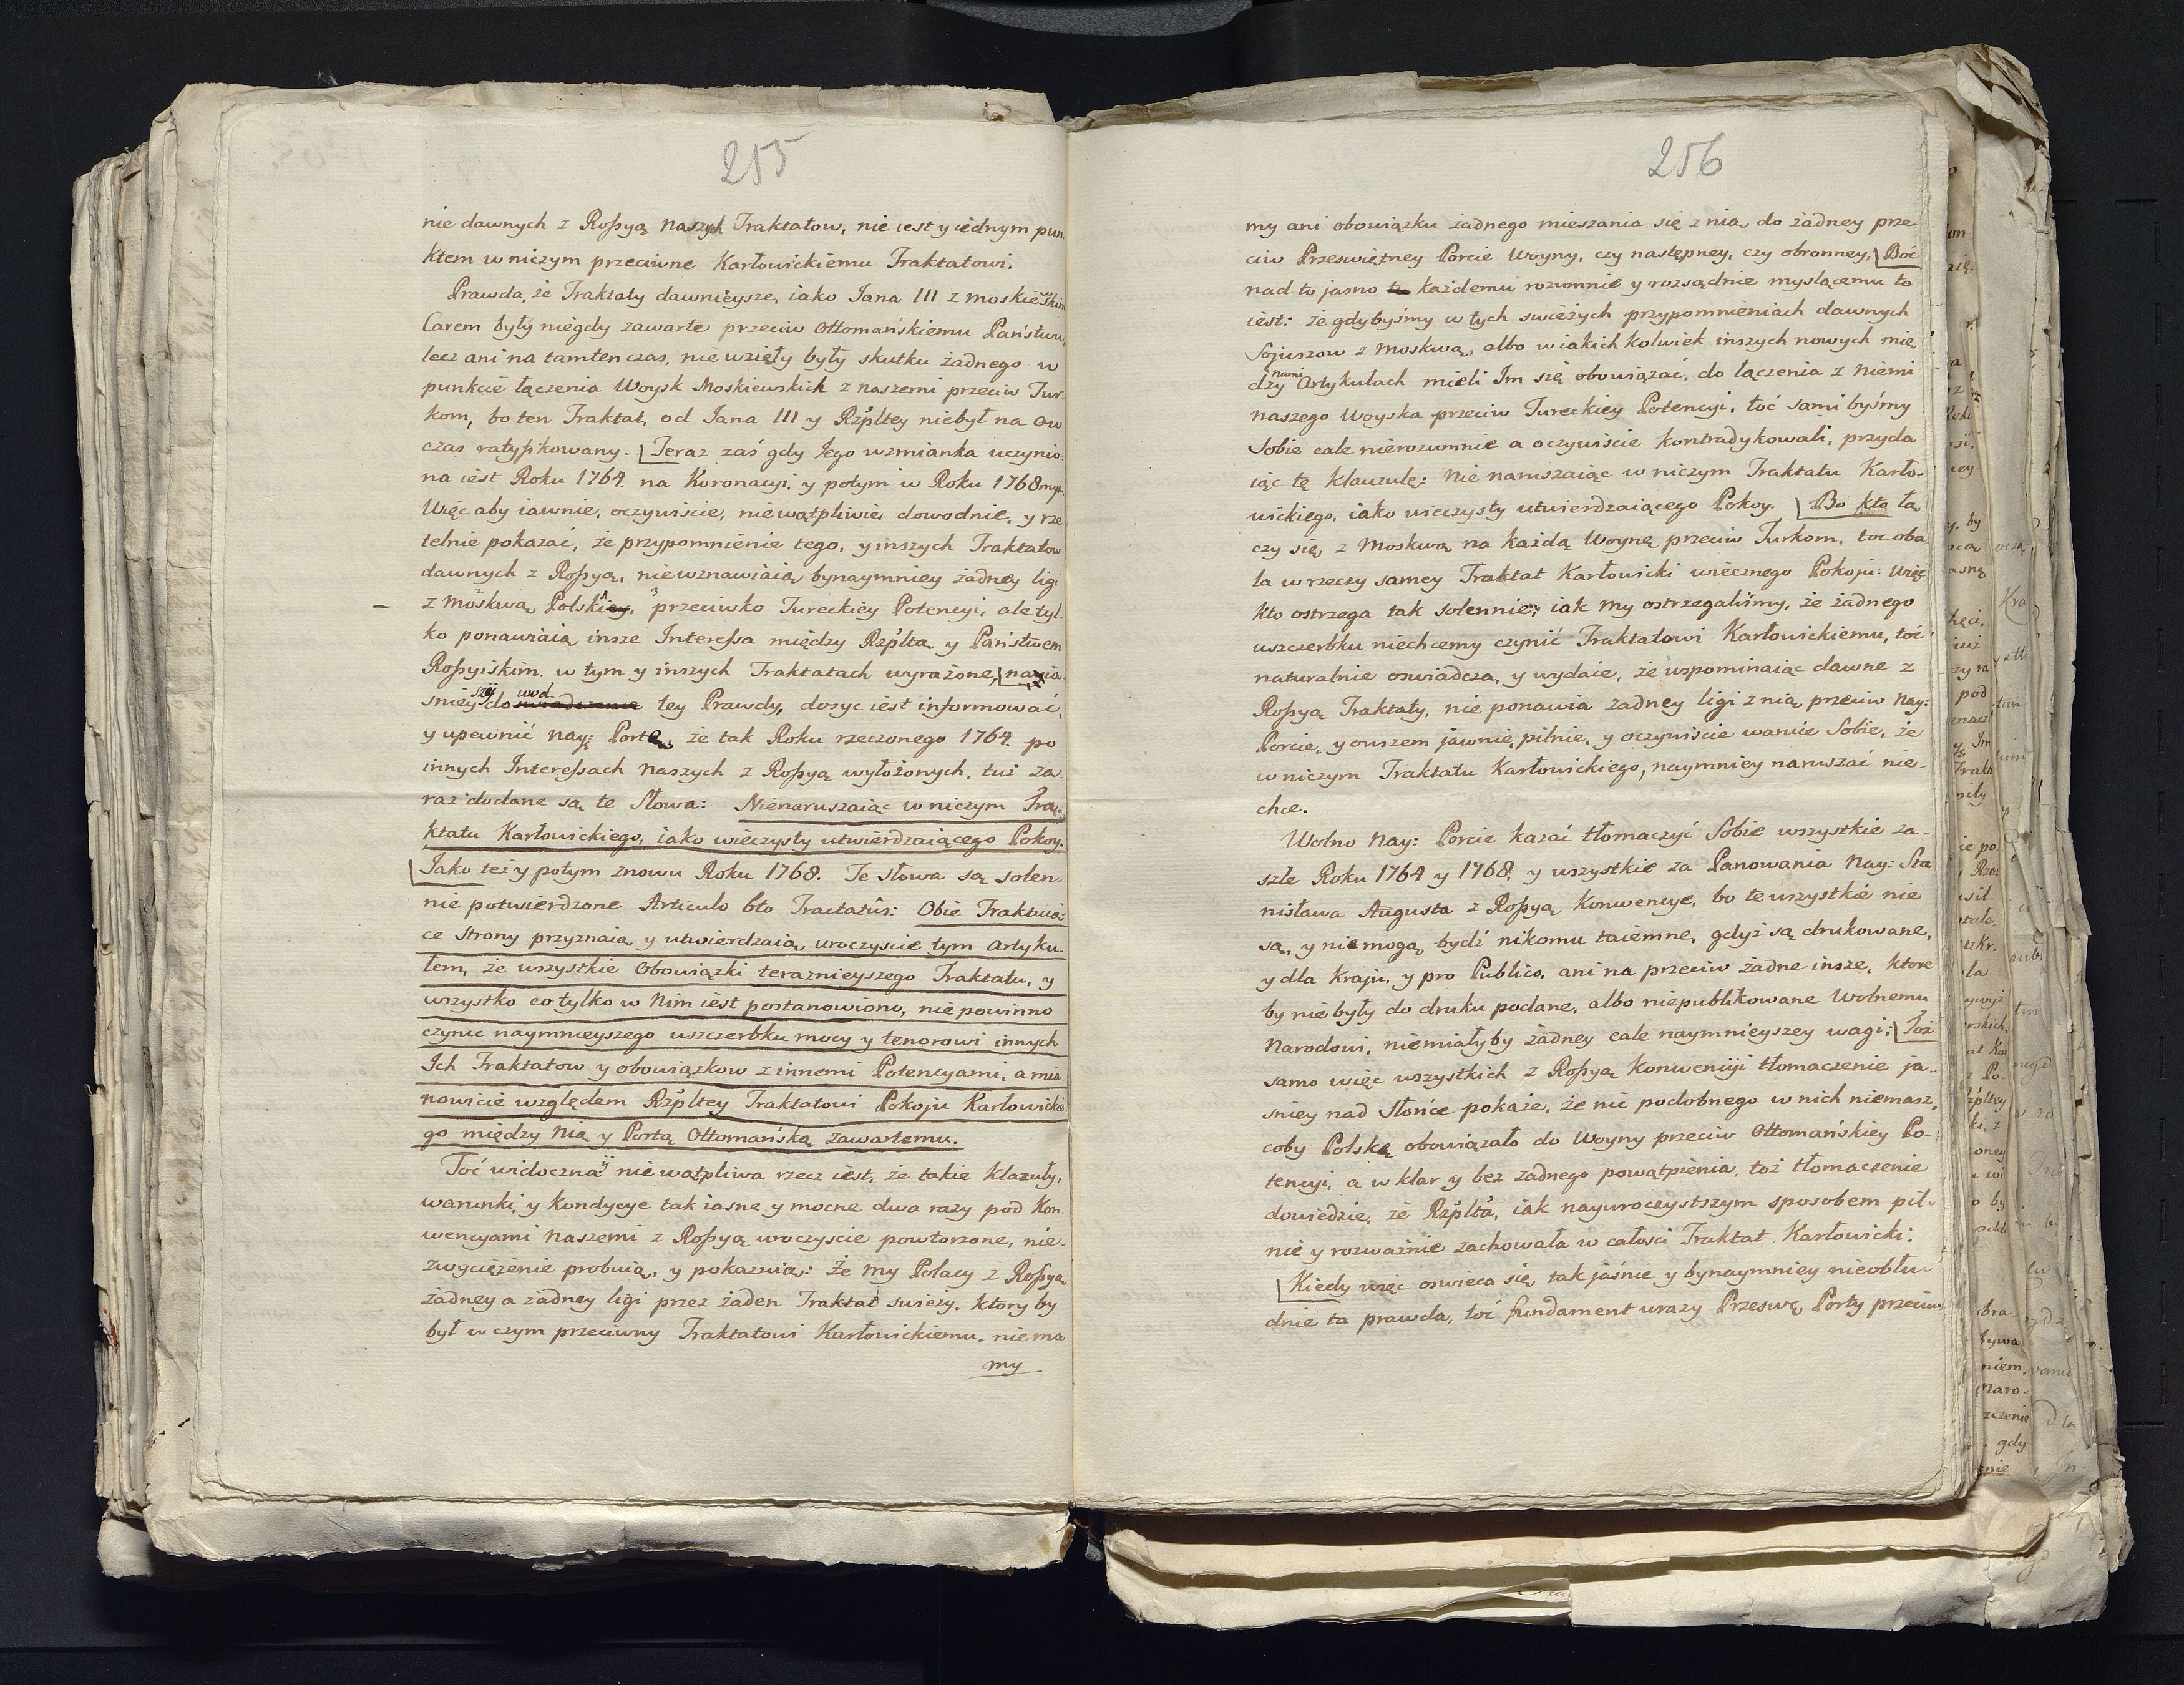 255
nie dawnych z Roßyą naszych Traktatow, nie iest y iednym pun
ktem w niczym przeciwne Karłowickiemu Traktatowi.
Prawda, że Traktaty dawnieysze, iako Jana III z moskiewskim
Carem były niegdy zawarte przeciw Ottomańskiemu Państwu,
lecz ani na tamten czas, nie wzięły były skutku żadnego w
punkcie łączenia Woysk Moskiewskich z naszemi przeciw Tur-
kom, bo ten Traktat, od Jana III y Rzpltey niebył na ow
czas ratyfikowany. Teraz zaś gdy Jego wzmianka uczynio
na iest Roku 1764. na Koronacyi, y potym w Roku 1768
Więc aby iawnie, oczywiście, niewątpliwie, dowodnie, y rze
telnie pokazać, że przypomnienie tego, y inszych Traktatow
dawnych z Roßyą, niewznawiaią bynaymniey żadney ligi
z Moskwą Polski, przeciwko Tureckiey Potencyi, ale tyl-
ko ponawiaią insze Interessa między Rzpltą y Państwem
Roßyiskim. w tym y inszych Traktatach wyrażone, na ia
snieyszy dowod tey Prawdy, dosyc iest informować,
y upewnić nay: Portę, że tak Roku rzeczonego 1764. po
innych Interessach naszych z Roßyą wyłożonych, tuż za-
raz dodane są te Słowa: Nienaruszaiąc w niczym Tra-
ktatu Karłowickiego, iako wieczysty utwierdzaiącego Pokoy.
Jako też y potym znowu Roku 1768. Te słowa są solen-
nie potwierdzone Articulo 6to Tractatûs: Obie Traktuią-
ce Strony przyznaią y utwierdzaią uroczyscie tym Artyku-
łem, że wszystkie Obowiązki teraznieyszego Traktatu, y
wszystko co tylko w Nim iest postanowiono, nie powinno
czynic naymnieyszego uszczerbku mocy y tenorowi innych
Ich Traktatow y obowiązkow z innemi Potencyami, a mia
nowicie względem Rzpltey Traktatowi Pokoju Karłowickie
go między Nią y Portą Ottomańską zawartemu.
Toć widoczna y niewątpliwa rzecz iest, że takie klazuły,
warunki y Kondycye tak iasne y mocne dwa razy pod Kon-
wencyami naszemi z Roßyą uroczyscie powtorzone, nie-
zwyciężenie probuią, y pokazuią: że my Polacy z Roßyą
żadney a żadney ligi przez żaden Traktat swieży. ktory by
był w czym przeciwny Traktatowi Karłowickiemu. nie ma
my
256
my ani obowiązku żadnego mieszania się z nią do żadney prze
ciw Prześwietney Porcie Woyny, czy następney, czy obronney, Boć
nad to jasno każdemu rozumnie y rozsądnie myslącemu to
iest: że gdybyśmy w tych swieżych przypomnieniach dawnych
Sojuszow z Moskwą, albo w iakich kolwiek inszych nowych mię
dzy nami Artykułach mieli Im się obowiązać, do łączenia z Niemi
naszego Woyska przeciw Tureckiey Potencyi, toć sami byśmy
Sobie cale nierozumnie a oczywiście kontradykowali, przyda
iąc tę klauzulę: Nie naruszaiąc w niczym Traktatu Karło-
wickiego, iako wieczysty utwierdzaiącego Pokoy. Bo kto łą
czy się z Moskwą na każdą Woynę przeciw Turkom, toc oba
la w rzeczy samey Traktat Karłowicki wiecznego Pokoju: Więc
kto ostrzega tak solennie, iak my ostrzegaliśmy, że żadnego
uszczerbku niechcemy czynić Traktatowi Karłowickiemu, toć
naturalnie oswiadcza, y wydaie, że wspominaiąc dawne z
Roßyą Traktaty, nie ponawia żadney ligi z nią przeciw Nay:
Porcie, y owszem jawnie, pilnie, y oczywiście waruie Sobie, że
w niczym Traktatu Karłowickiego, naymniey naruszać nie-
chce.
Wolno Nay: Porcie kazać tłomaczyć Sobie wszystkie za-
szłe Roku 1764 y 1768. y wszystkie za Panowania Nay: Sta
nisława Augusta z Roßyą Konwencye, bo te wszystkie nie
są, y nie mogą bydź nikomu taiemne, gdyż są drukowane,
y dla Kraju, y pro Publico, ani na przeciw żadne insze, ktore
by nie były do druku podane, albo niepublikowane Wolnemu
Narodowi, niemiałyby żadney cale naymnieyszey wagi; Toż
samo więc wszystkich z Roßyą Konwencyi tłomaczenie ja-
sniey nad Słońce pokaże, że nic podobnego w nich niemasz,
coby Polskę obowiązało do Woyny przeciw Ottomańskiey Po-
tencyi, a w klar y bez żadnego powątpienia, toż tłomaczenie
dowiedzie, że Rzplta, iak nayuroczystszym sposobem pil-
nie y rozważnie zachowała w całosci Traktat Karłowicki:
Kiedy więc oswieca się tak jaśnie y bynaymniey nieobłu-
dnie ta prawda, toć fundament urazy Przeswę Porty przeciw